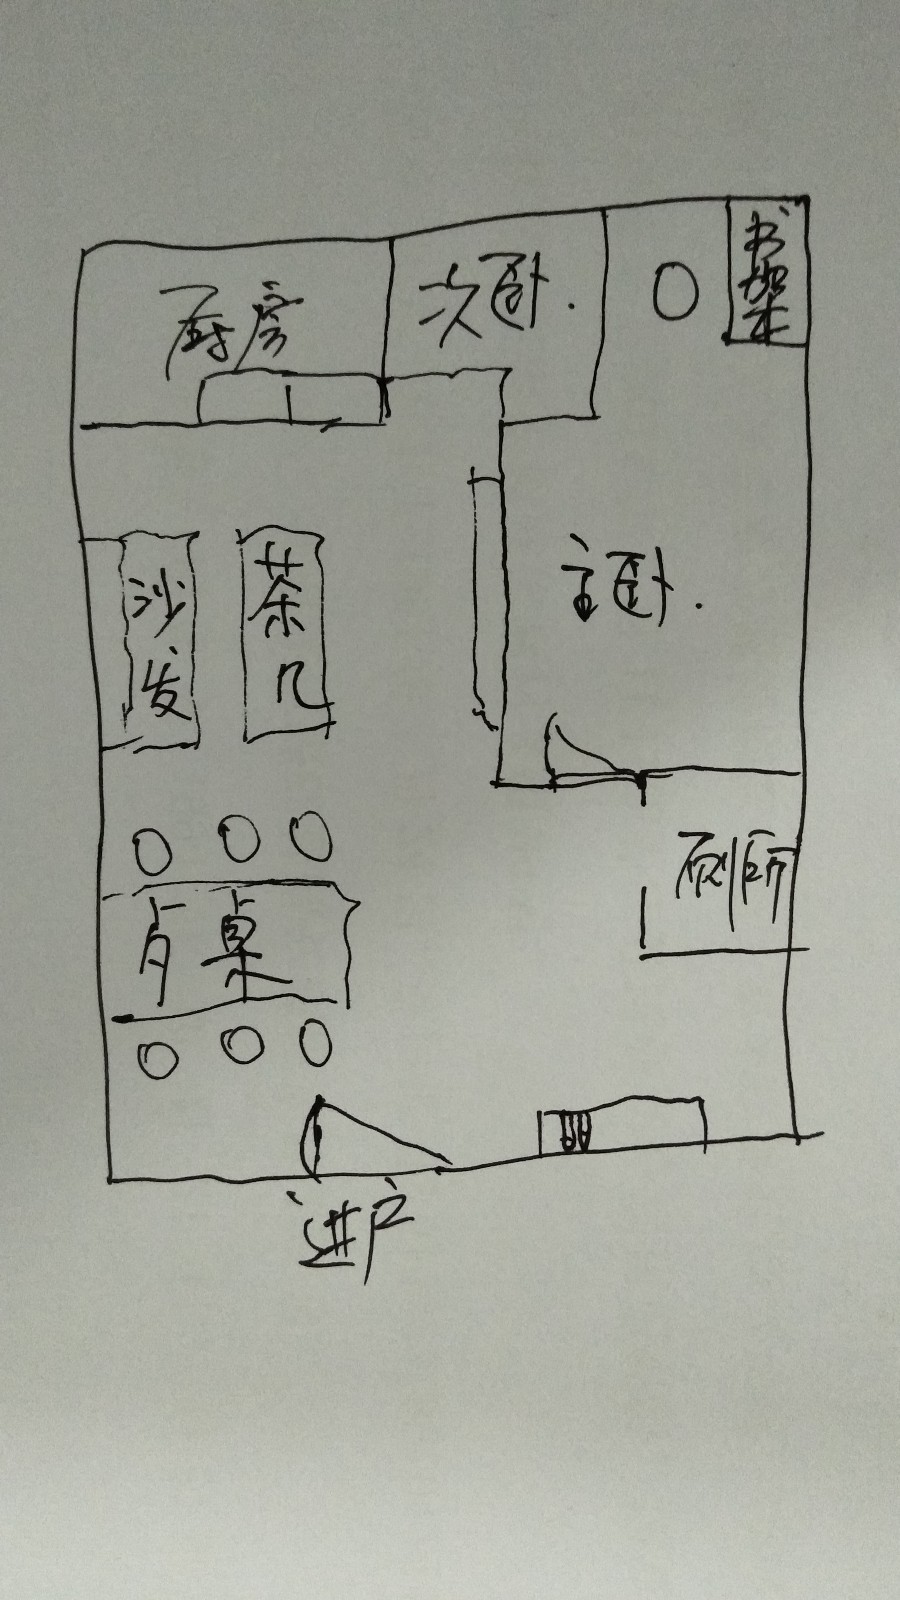 厨房
次卧
书架
沙发
茶几
主卧
厕所
桌
进户